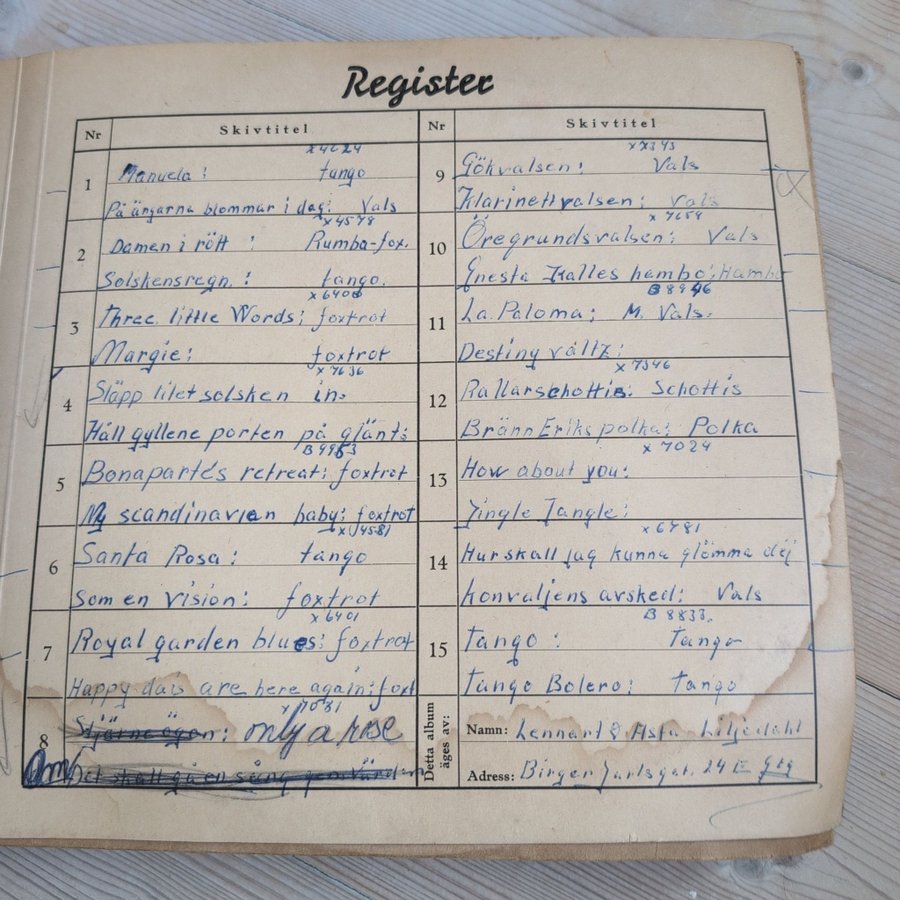 Register
Nr Skivtitel
x4624
1 Manuela: tango
På ängarna blommar i dag: Vals
x4578
2 Damen i rött : Rumba-fox.
Solskensregn. : tango.
x6400
3 Three little Words: foxtrot
Margie: foxtrot
x7636
4 Släpp litet solsken in.
Håll gyllene porten på glänt:
B9963
5 Bonapartés retreat: foxtrot
My scandinavian baby: foxtrot
6 Santa Rosa: tango
Som en vision: foxtrot
x6401
7 Royal garden blues: foxtrot
Happy dais are here again: foxt
8 Stjärneögon: only a rose
Det skall gå en sång genom
Nr Skivtitel
x7343
9 Gökvalsen: Vals
Klarinettvalsen: Vals
x 7659
10 Öregrundsvalsen: Vals
Gnesta Kalles hambo: Hambo
B 8946
11 La Paloma: M. Vals.
Destiny váltz:
x 7346
12 Rallarschottis: Schottis
Bränn Eriks polka: Polka
x 7024
13 How about you:
Jingle Jangle:
x 6781
14 Hur skall jag kunna glömma dej
Konvaljens avsked: Vals
B 8833.
15 Tango : Tango
Tango Bolero: tango
Detta album äges av:
Namn: Lennart & Asta Liljedahl
Adress: Birger Jarlsgat. 24 Gbg